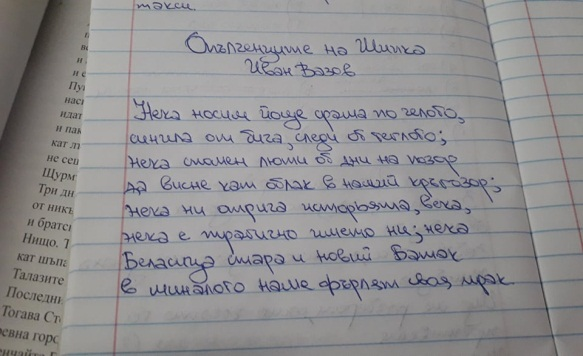 такси.
Опълченците на Шипка
Иван Вазов
Нека носим йоще срама по челото,
синила от бича, следи от теглото;
нека спомен люти от дни на позор
да висне кат облак в наший кръгозор;
нека ни отрича историята, века,
нека е трагично името ни; нека
Беласица стара и новий Батак
в миналото наше фърлят своя мрак.
и
и с
Пу
наси
идат
и пак
кат ль
не сещ
Щурм
Три дн
от никъ
и братск
Нищо. Т
кат шъпа
Талазите
Последни
Тогава Ст
ревна горо